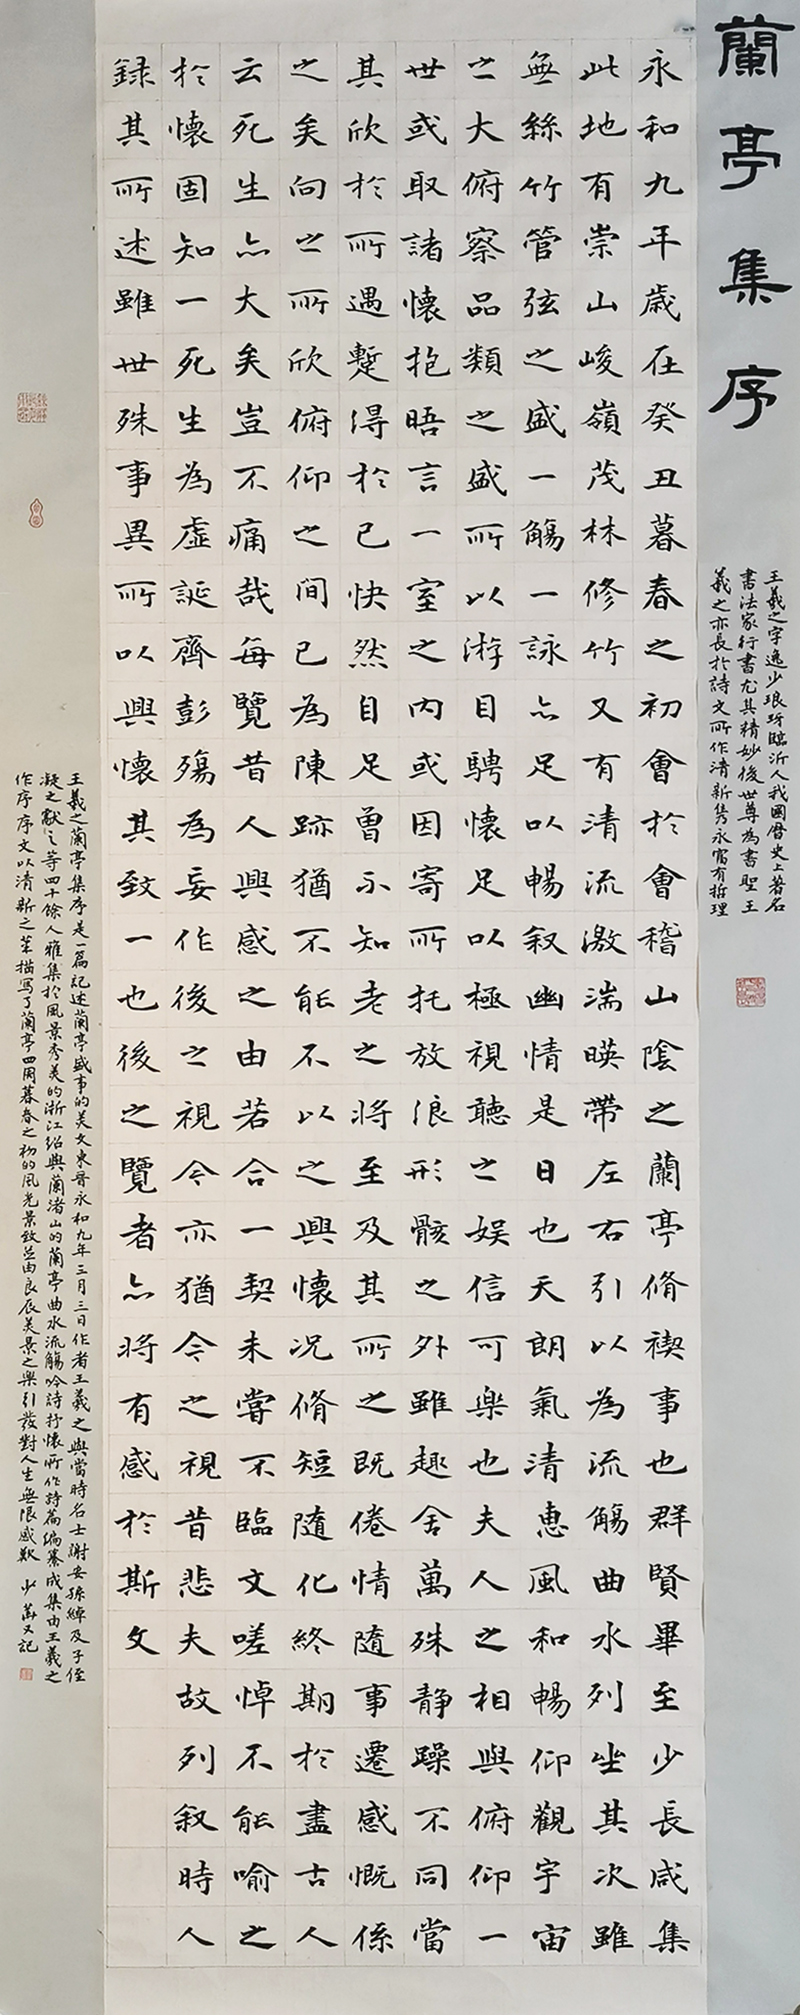 蘭亭集序
王羲之字逸少琅玡臨沂人我國曆史上著名
書法家行書尤其精妙後世尊為書聖王
羲之亦長於詩文所作清新雋永富有哲理
永和九年歲在癸丑暮春之初會於會稽山陰之蘭亭脩禊事也群賢畢至少長咸集
此地有崇山峻嶺茂林修竹又有清流激湍暎帶左右引以為流觴曲水列坐其次雖
無絲竹管弦之盛一觴一詠亦足以暢叙幽情是日也天朗氣清惠風和暢仰觀宇宙
之大俯察品類之盛所以游目騁懷足以極視聽之娱信可樂也夫人之相與俯仰一
世或取諸懷抱晤言一室之内或因寄所托放浪形骸之外雖趣舍萬殊静躁不同當
其欣於所遇蹔得於己快然自足曾不知老之將至及其所之既倦情隨事遷感慨係
之矣向之所欣俯仰之間已為陳跡猶不能不以之興懷况脩短隨化終期於盡古人
云死生亦大矣豈不痛哉每覽昔人興感之由若合一契未嘗不臨文嗟悼不能喻之
於懷固知一死生為虛誕齊彭殤為妄作後之視今亦猶今之視昔悲夫故列叙時人
録其所述雖世殊事異所以興懷其致一也後之覽者亦將有感於斯文
王羲之蘭亭集序是一篇記述蘭亭盛事的美文東晉永和九年三月三日作者王羲之與當時名士謝安孫綽及子侄
凝之獻之等四十餘人雅集於風景秀美的浙江紹興蘭渚山的蘭亭曲水流觴吟詩抒懷所作詩篇編纂成集由王羲之
作序序文以清新之筆描寫了蘭亭四周暮春之初的風光景致並由良辰美景之樂引發對人生無限感歎 少華又記